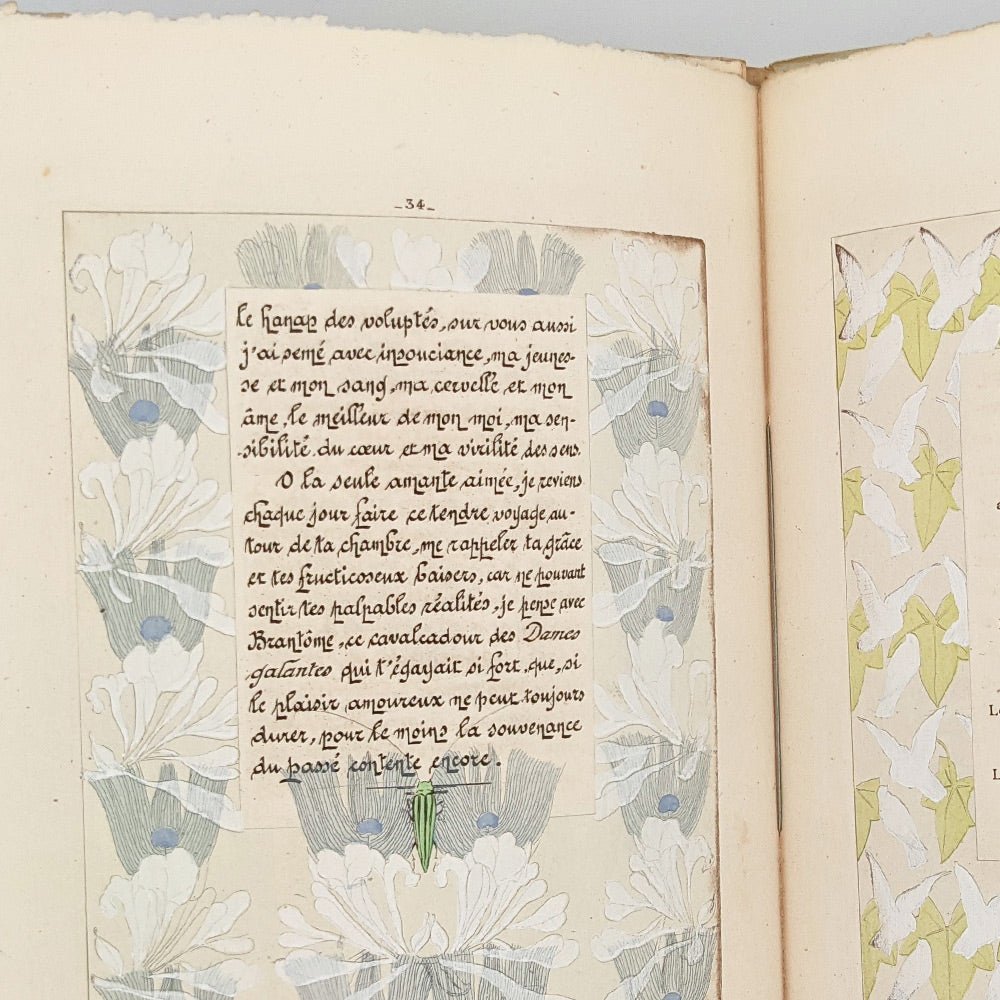 _34_
le hanap des voluptés, sur vous aussi
j'ai semé avec insouciance, ma jeunes-
se et mon sang, ma cervelle et mon
âme, le meilleur de mon moi, ma sen-
sibilité du cœur et ma virilité des sens.
O la seule amante aimée, je reviens
chaque jour faire ce tendre voyage au-
tour de ta chambre, me rappeler ta grâce
et tes fructicoseux baisers, car ne pouvant
sentir tes palpables réalités, je pense avec
Brantôme, ce cavalcadour des Dames
galantes qui t'égayait si fort, que, si
le plaisir amoureux ne peut toujours
durer, pour le moins la souvenance
du passé contente encore.